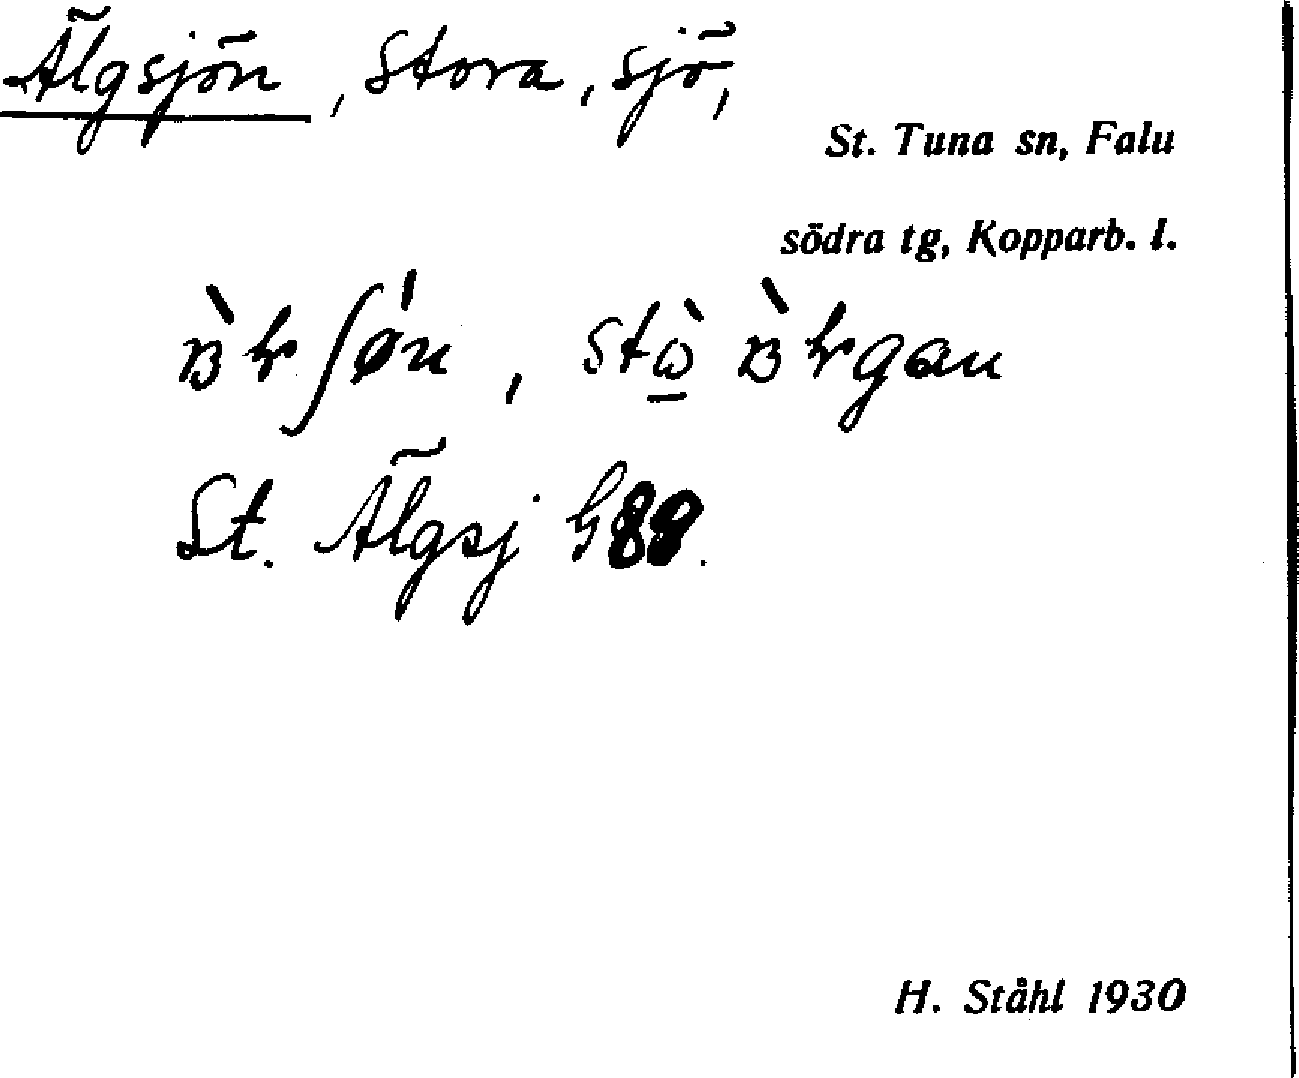 Älgsjön, Stora, sjö,
St. Tuna sn, Falu
södra tg, Kopparb. l.
St. Älgsj G88.
H. Ståhl 1930